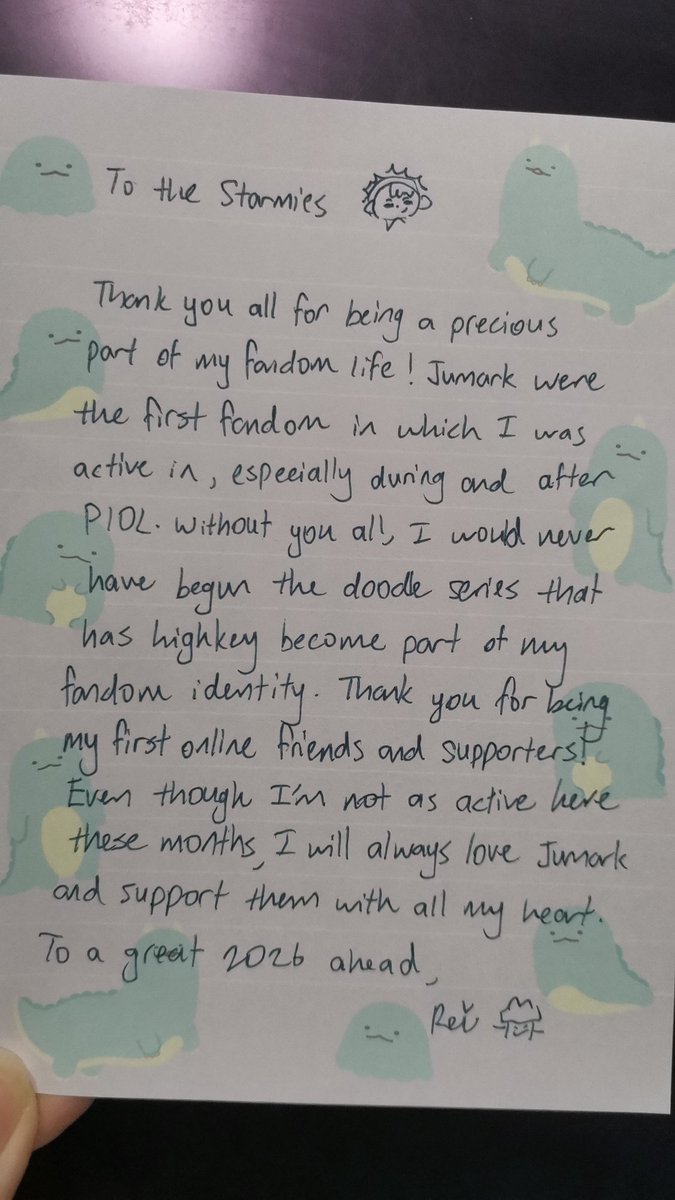 To the Stormies
Thank you all for being a precious
part of my fandom life! Jumark were
the first fandom in which I was
active in, especially during and after
PIOL. Without you all, I would never
have begun the doodle series that
has highkey become part of my
fandom identity. Thank you for being
my first online friends and supporters!
Even though I'm not as active here
these months, I will always love Jumark
and support them with all my heart.
To a great 2026 ahead,
Rei